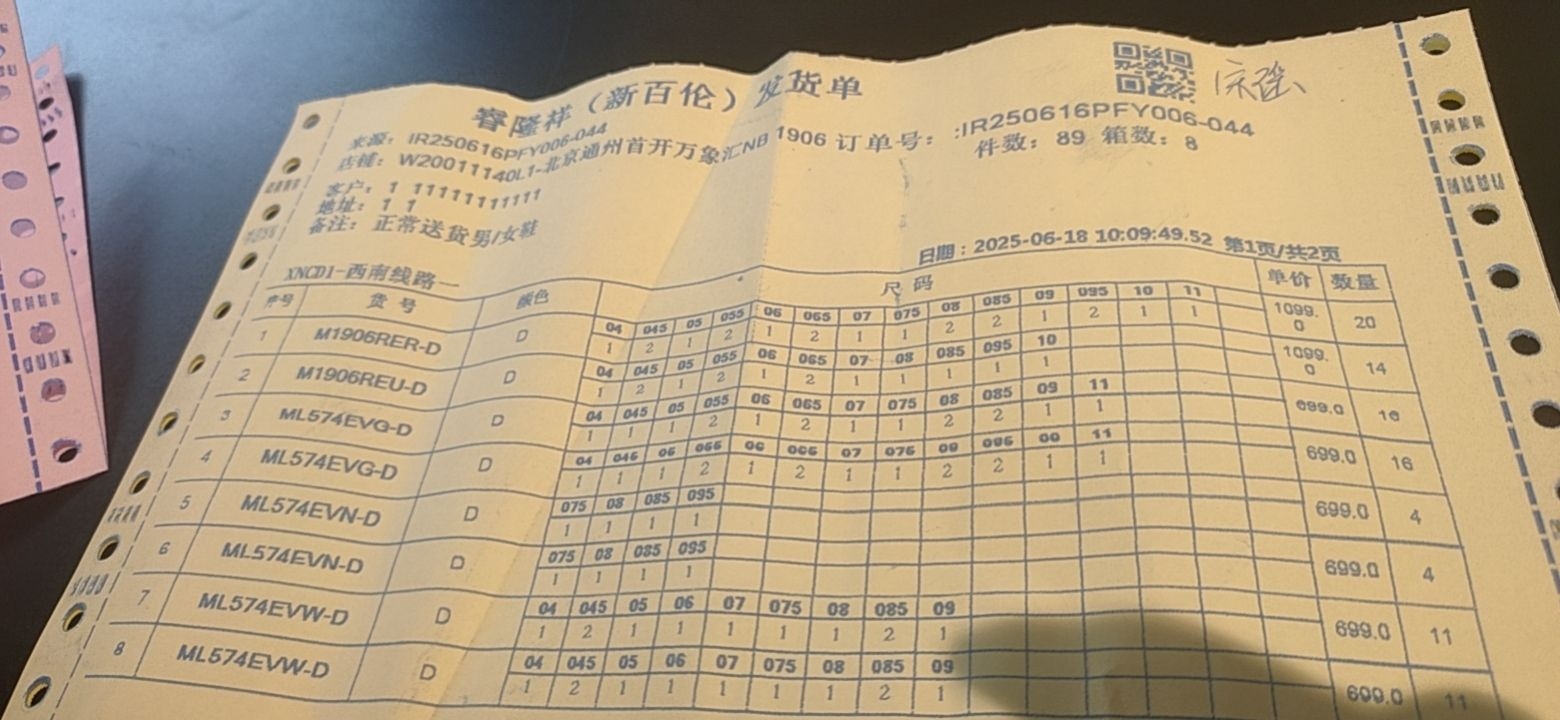 睿隆祥（新百伦）发货单
来源：IR250616PFY006-044
店铺：W20011140L1-北京通州首开万象汇NB 1906 订单号：:IR250616PFY006-044
件数：89 箱数：8
客户：1 11111111111
地址：1 1
备注：正常送货男/女鞋
日期：2025-06-18 10:09:49.52 第1页/共2页
XNCD1-西南线路一
序号 货号 颜色 尺码 单价 数量
04 045 05 055 06 065 07 075 08 085 09 095 10 11
1 M1906RER-D D 1 2 1 2 1 2 1 1 2 2 1 2 1 1 1099.0 20
04 045 05 055 06 065 07 08 085 095 10
2 M1906REU-D D 1 2 1 2 1 2 1 1 1 1 1 1099.0 14
04 045 05 055 06 065 07 075 08 085 09 11
3 ML574EVG-D D 1 1 1 2 1 2 1 1 2 2 1 1 699.0 16
04 045 05 055 06 065 07 075 08 085 09 11
4 ML574EVG-D D 1 1 1 2 1 2 1 1 2 2 1 1 699.0 16
075 08 085 095
5 ML574EVN-D D 1 1 1 1 699.0 4
075 08 085 095
6 ML574EVN-D D 1 1 1 1 699.0 4
04 045 05 06 07 075 08 085 09
7 ML574EVW-D D 1 2 1 1 1 1 1 2 1 699.0 11
04 045 05 06 07 075 08 085 09
8 ML574EVW-D D 1 2 1 1 1 1 1 2 1 699.0 11